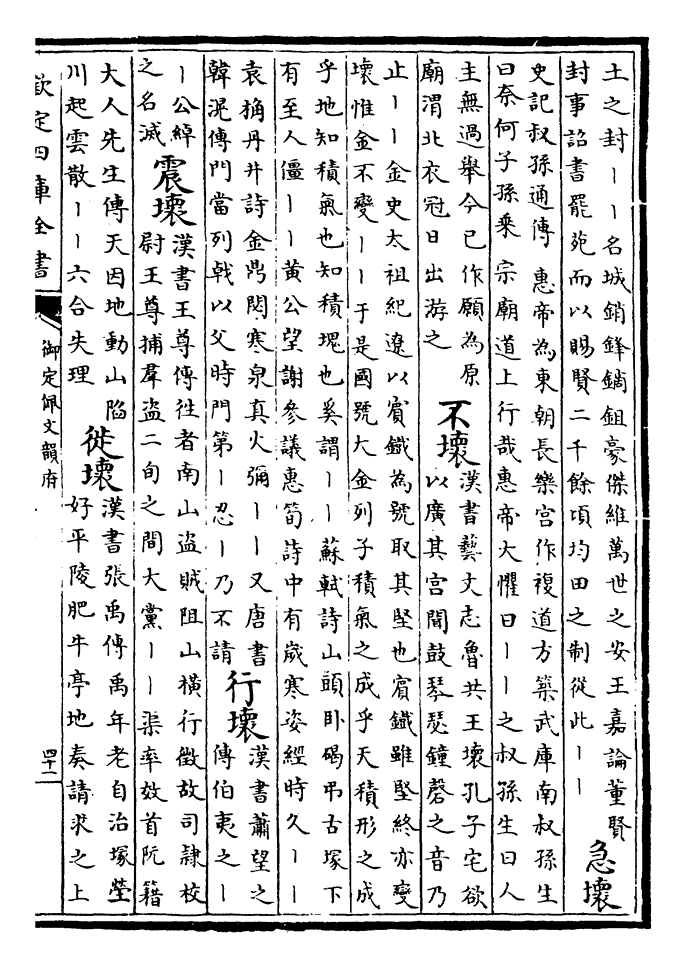 土之封丨丨名城銷鋒鏑鉏豪傑維萬世之安王嘉論董賢
封事詔書罷苑而以賜賢二千餘頃均田之制從此丨丨
急壞
史記叔孫通傳惠帝為東朝長樂宮作複道方築武庫南叔孫生
曰奈何子孫乗宗廟道上行哉惠帝大懼曰丨丨之叔孫生曰人
主無過舉今已作願為原
廟渭北衣冠日出游之
不壞
漢書藝文志魯共王壞孔子宅欲
以廣其宮聞鼓琴瑟鐘磬之音乃
止丨丨金史太祖紀遼以賓鐵為號取其堅也賓鐵雖堅終亦變
壞惟金不變丨丨于是國號大金列子積氣之成乎天積形之成
乎地知積氣也知積塊也奚謂丨丨蘇軾詩山頭卧碣弔古塚下
有至人僵丨丨黃公望謝參議惠筍詩中有歲寒姿經時久丨丨
袁桷丹井詩金鼎閟寒泉真火彌丨丨又唐書
韓滉傳門當列戟以父時門第丨忍丨乃不請
行壞
漢書蕭望之
傳伯夷之丨
丨公綽
之名滅
震壞
漢書王尊傳往者南山盜賊阻山橫行徵故司隸校
尉王尊捕羣盜二旬之間大黨丨丨渠率效首阮籍
大人先生傳天因地動山陷
川起雲散丨丨六合失理
徙壞
漢書張禹傳禹年老自治塚塋
好平陵肥牛亭地奏請求之上
欽定四庫全書
御定佩文韻府
四十二